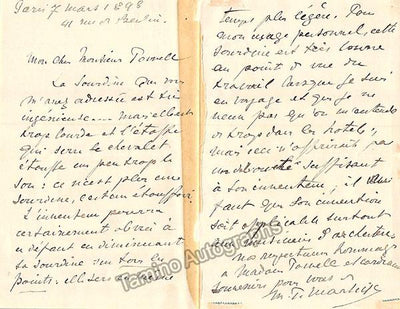 Paris 7 mars 1898
41 rue de
Mon cher Monsieur Powell
La Sourdine que vous
m'avez adressée est très
ingénieuse.... mais elle est
trop lourde et l'étoffe
qui serre le chevalet
étouffe un peu trop le
son: ce n'est plus une
sourdine, c'est un étouffoir!
L'inventeur pourra
certainement obvier à
ce défaut en diminuant
sa sourdine sur tous les
points: elle sera en même
temps plus légère. Pour
mon usage personnel, cette
Sourdine est très bonne
au point de vue du
travail lorsque je suis
en voyage et que je ne
veux pas qu'on m'entende
trop dans les hôtels;
mais ceci n'offrirait pas
un débouché suffisant
à son inventeur, il
faut que son invention
soit applicable surtout
aux musiciens d'orchestre.
Mes respectueux hommages
à Madame Powell et cordiaux
souvenirs pour vous
M. P. Marsick
Tamino Autographs